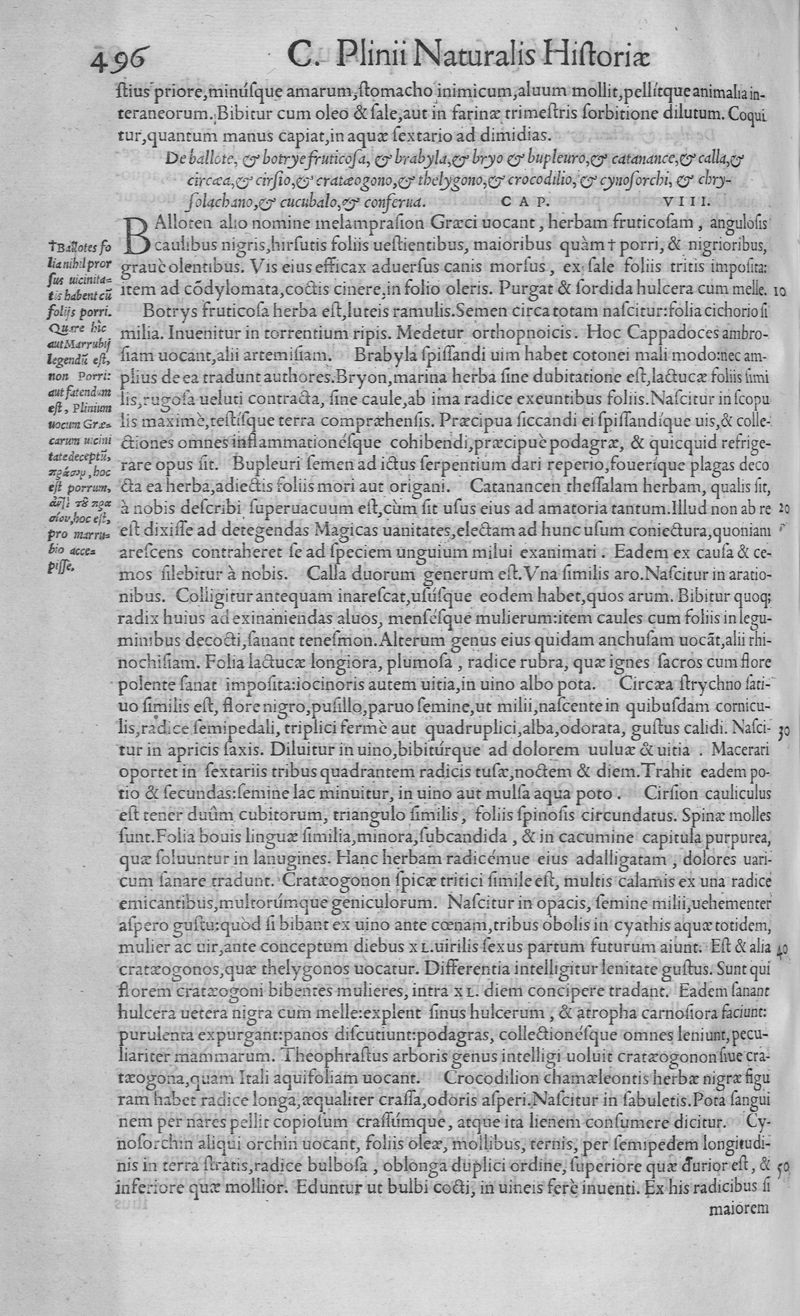 496 C. Plinii Naturalis Hiſtoriæ
ſtius priore,minúſque amarum,ſtomacho inimicum,aluum mollit,pellítque animalia in-
teraneorum. Bibitur cum oleo & ſale,aut in farinæ trimeſtris ſorbitione dilutum. Coqui
tur,quantum manus capiat,in aquæ ſextario ad dimidias.
De ballote, & botrye fruticoſa, & brabyla,& bryo & bupleuro,& catanance,& calla,&
circæa,& cirſio,& cratæogono,& thelygono,& crocodilio, & cynoſorchi, & chry-
ſolachano,& cucubalo,& conferua. CAP. VIII.
BAlloten alio nomine melampraſion Græci uocant, herbam fruticoſam, anguloſis
caulibus nigris,hirſutis foliis ueſtientibus, maioribus quàm † porri, & nigrioribus,
grauè olentibus. Vis eius efficax aduerſus canis morſus, ex ſale foliis tritis impoſita:
item ad cõdylomata,coctis cinere,in folio oleris. Purgat & ſordida hulcera cum melle. 10
Botrys fruticoſa herba eſt,luteis ramulis.Semen circa totam naſcitur:folia cichorio ſi
milia. Inuenitur in torrentium ripis. Medetur orthopnoicis. Hoc Cappadoces ambro-
ſiam uocant,alii artemiſiam. Brabyla ſpiſſandi uim habet cotonei mali modo:nec am-
plius de ea tradunt authores.Bryon,marina herba ſine dubitatione eſt,lactucæ foliis ſimi
lis,rugoſa ueluti contracta, ſine caule,ab ima radice exeuntibus foliis.Naſcitur in ſcopu
lis maximè,teſtíſque terra compræhenſis. Præcipua ſiccandi ei ſpiſſandíque uis,& colle-
ctiones omnes inflammationéſque cohibendi,præcipuè podagræ, & quicquid refrige-
rare opus ſit. Bupleuri ſemen ad ictus ſerpentium dari reperio,fouerique plagas deco
cta ea herba,adiectis foliis mori aut origani. Catanancen theſſalam herbam, qualis ſit,
à nobis deſcribi ſuperuacuum eſt,cùm ſit uſus eius ad amatoria tantum.Illud non ab re 20
eſt dixiſſe ad detegendas Magicas uanitates,electam ad hunc uſum coniectura,quoniam
areſcens contraheret ſe ad ſpeciem unguium milui exanimati. Eadem ex cauſa & ce-
mos ſilebitur à nobis. Calla duorum generum eſt.Vna ſimilis aro.Naſcitur in aratio-
nibus. Colligitur antequam inareſcat,uſúſque eodem habet,quos arum. Bibitur quoq;
radix huius ad exinaniendas aluos, menſéſque mulierum:item caules cum foliis in legu-
minibus decocti,ſanant teneſmon.Alterum genus eius quidam anchuſam uocãt,alii rhi-
nochiſiam. Folia lactucæ longiora, plumoſa, radice rubra, quæ ignes ſacros cum flore
polentę ſanat impoſita:iocinoris autem uitia,in uino albo pota. Circæa ſtrychno ſati-
uo ſimilis eſt, flore nigro,puſillo,paruo ſemine,ut milii,naſcente in quibuſdam cornicu-
lis,radice ſemipedali, triplici fermè aut quadruplici,alba,odorata, guſtus calidi. Naſci- 30
tur in apricis ſaxis. Diluitur in uino,bibitúrque ad dolorem uuluæ & uitia. Macerari
oportet in ſextariis tribus quadrantem radicis tuſæ,noctem & diem.Trahit eadem po-
tio & ſecundas:ſemine lac minuitur, in uino aut mulſa aqua poto. Cirſion cauliculus
eſt tener duûm cubitorum, triangulo ſimilis, foliis ſpinoſis circundatus. Spinæ molles
ſunt.Folia bouis linguæ ſimilia,minora,ſubcandida, & in cacumine capitula purpurea,
quæ ſoluuntur in lanugines. Hanc herbam radicémue eius adalligatam, dolores uari-
cum ſanare tradunt. Cratæogonon ſpicæ tritici ſimile eſt, multis calamis ex una radice
emicantibus,multorúmque geniculorum. Naſcitur in opacis, ſemine milii,uehementer
aſpero guſtu:quòd ſi bibant ex uino ante cœnam,tribus obolis in cyathis aquæ totidem,
mulier ac uir,ante conceptum diebus XL.uirilis ſexus partum futurum aiunt. Eſt & alia 40
cratæogonos,quæ thelygonos uocatur. Differentia intelligitur lenitate guſtus. Sunt qui
florem cratæogoni bibentes mulieres, intra XL. diem concipere tradant. Eadem ſanant
hulcera uetera nigra cum melle:explent ſinus hulcerum, & atropha carnoſiora faciunt:
purulenta expurgant:panos diſcutiunt:podagras, collectionéſque omnes leniunt,pecu-
liariter mammarum. Theophraſtus arboris genus intelligi uoluit cratæogonon ſiue cra-
tæogona,quam Itali aquifoliam uocant. Crocodilion chamæleontis herbæ nigræ figu
ram habet radice longa,æqualiter craſſa,odoris aſperi.Naſcitur in ſabuletis.Pota ſangui
nem per nares pellit copioſum craſſúmque, atque ita lienem conſumere dicitur. Cy-
noſorchin aliqui orchin uocant, foliis oleæ, mollibus, ternis, per ſemipedem longitudi-
nis in terra ſtratis,radice bulboſa, oblonga duplici ordine, ſuperiore quæ durior eſt, & 50
inferiore quæ mollior. Eduntur ut bulbi cocti, in uineis ferè inuenti. Ex his radicibus ſi
maiorem
†Ballotes fo
lia nihil pror
ſus uicinita=
tis habent cũ
folijs porri.
Quare hic
aut Marrubij
legendũ eſt,
non Porri:
aut fatendum
eſt, Plinium
uocum Græ=
carum uicini
tate deceptũ,
πράσιον, hoc
eſt porrum,
ἀντὶ τȣ πρα
σίου,hoc eſt,
pro marru=
bio acce=
piſſe.